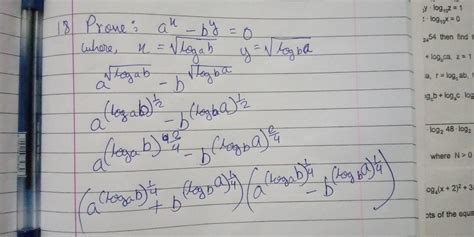 18 Prove: a^x - b^y = 0
where, x = √log_a b   y = √log_b a
a^√log_a b - b^√log_b a
a^(log_a b)^1/2 - b^(log_b a)^1/2
a^(log_a b)^2/4 - b^(log_b a)^2/4
(a^(log_a b)^1/4 + b^(log_b a)^1/4) (a^(log_a b)^1/4 - b^(log_b a)^1/4)
log_10 z = 1
log_10 x = 0
54 then find
+ log_c a,
a, r = log_c ab,
log_2 48 · log_2
where N > 0
(x + 2)² +
of the equa